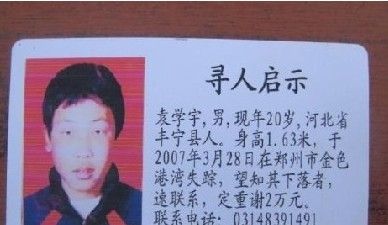 寻人启示
袁学宇,男,现年20岁,河北省
丰宁县人。身高1.63米,于
2007年3月28日在郑州市金色
港湾失踪,望知其下落者,
速联系,定重谢2万元。
联系电话: 03148391491